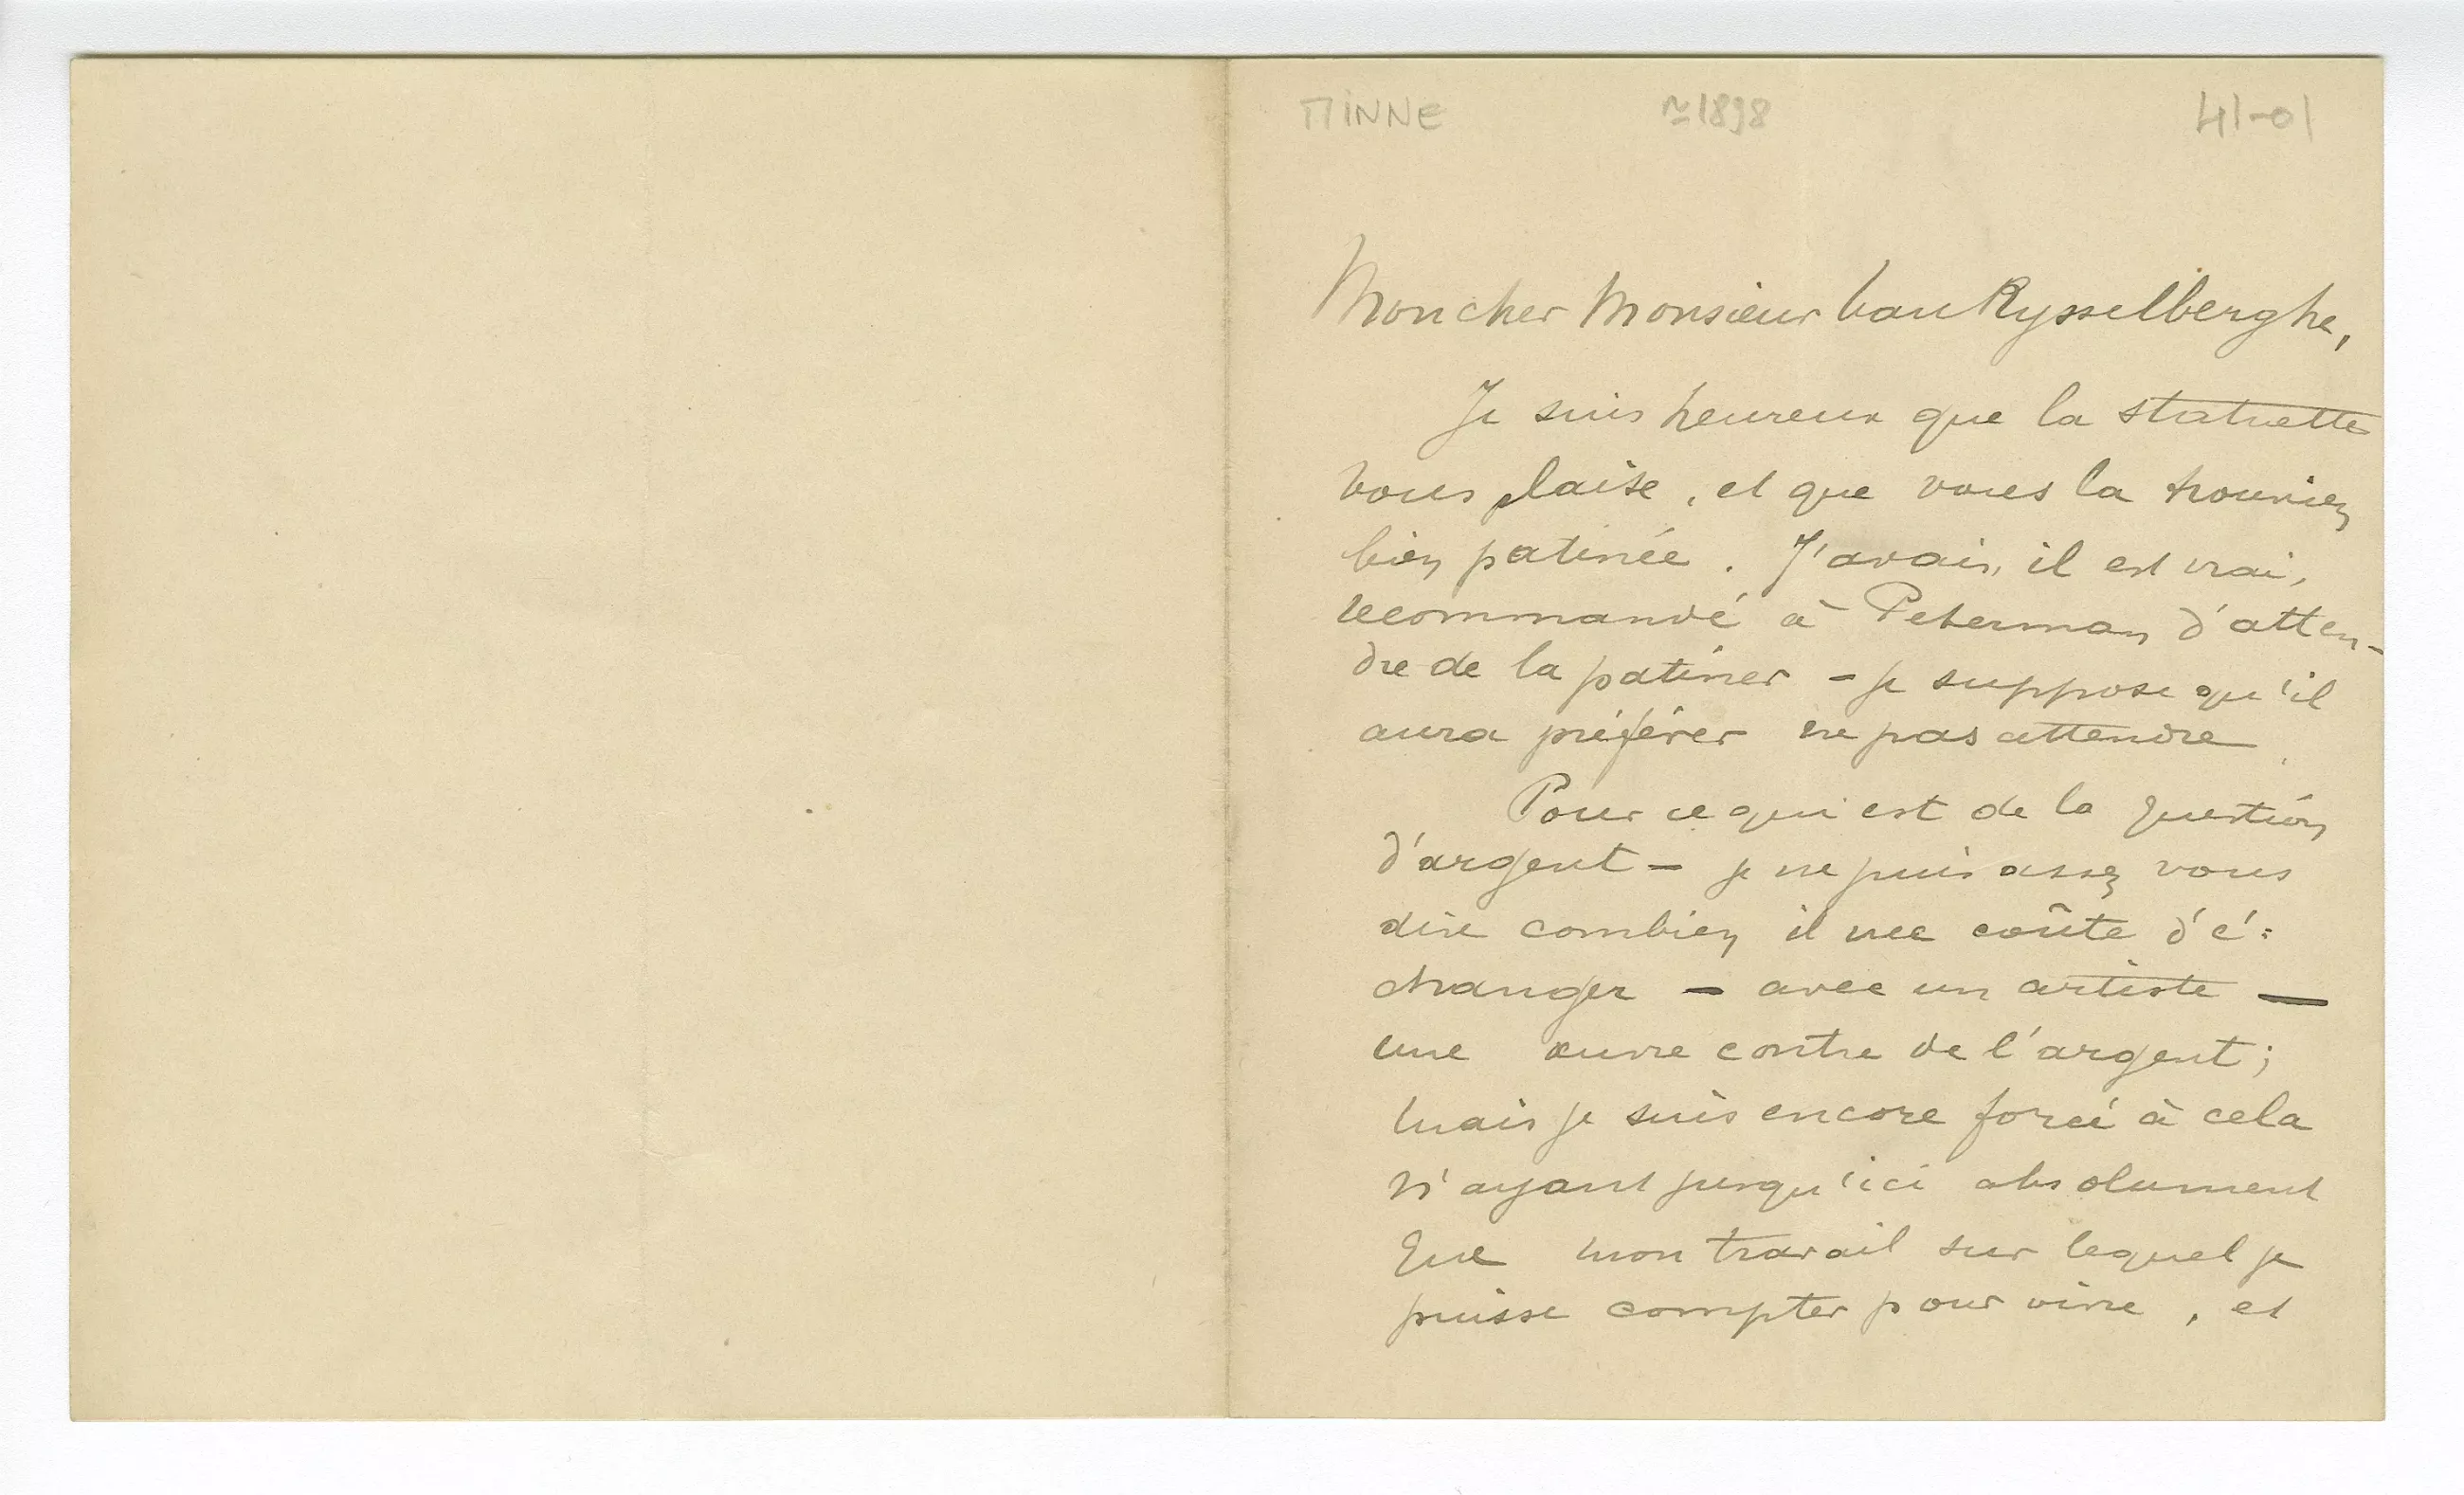 MINNE ≃1898 41-01
Mon cher Monsieur Van Rysselberghe,
Je suis heureux que la statuette
vous plaise, et que vous la trouviez
bien patinée. J'avais, il est vrai,
recommandé à Peterman d'atten-
dre de la patiner - je suppose qu'il
aura préférer ne pas attendre.
Pour ce qui est de la question
d'argent - je ne puis assez vous
dire combien il me coûte d'é:
changer - avec un artiste -
une œuvre contre de l'argent;
mais je suis encore forcé à cela
n'ayant jusqu'ici absolument
que mon travail sur lequel je
puisse compter pour vivre, et